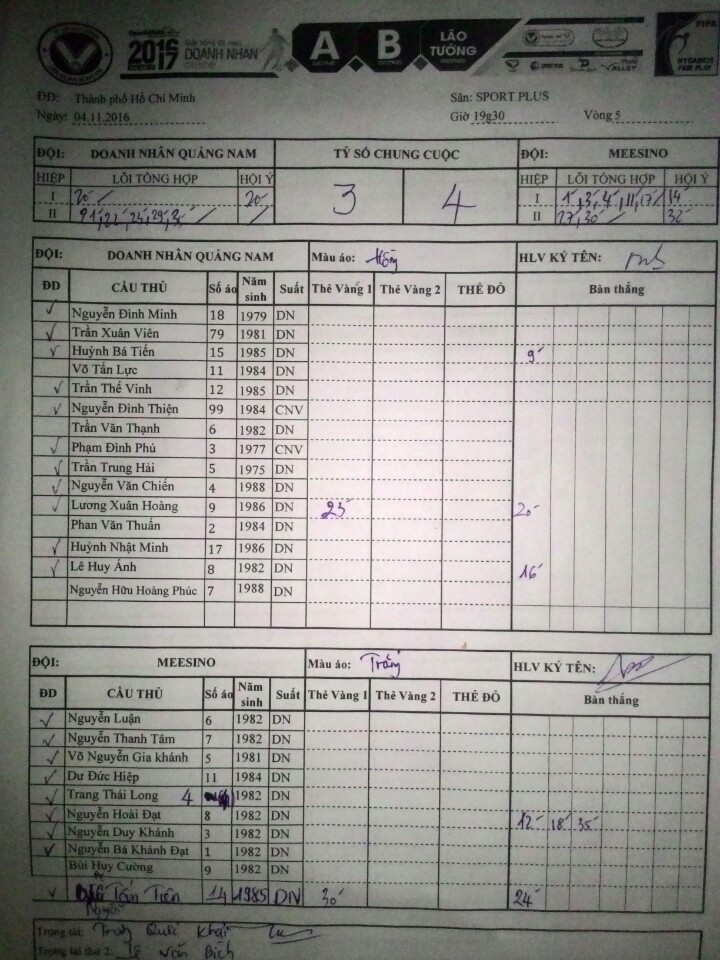 2016 DOANH NHÂN online A B LÃO TƯỚNG FIFA
SPORT PLUS THAI VALLEY MY GAME IS FAIR PLAY
ĐĐ: Thành phố Hồ Chí Minh Sân: SPORT PLUS
Ngày: 04.11.2016 Giờ 19g30 Vòng 5
ĐỘI: DOANH NHÂN QUẢNG NAM TỶ SỐ CHUNG CUỘC ĐỘI: MEESINO
HIỆP LỖI TỔNG HỢP HỘI Ý 3 4 HIỆP LỖI TỔNG HỢP HỘI Ý
I 20' 20' I 1', 3', 4', 11', 17' 14'
II 21', 22', 25', 29', II 27', 30' 32'
ĐỘI: DOANH NHÂN QUẢNG NAM Màu áo: Hồng HLV KÝ TÊN:
ĐD CẦU THỦ Số áo Năm sinh Suất Thẻ Vàng 1 Thẻ Vàng 2 THẺ ĐỎ Bàn thắng
✓ Nguyễn Đình Minh 18 1979 DN
✓ Trần Xuân Viên 79 1981 DN
✓ Huỳnh Bá Tiến 15 1985 DN 9'
Võ Tấn Lực 11 1984 DN
✓ Trần Thế Vinh 12 1985 DN
✓ Nguyễn Đình Thiện 99 1984 CNV
Trần Văn Thạnh 6 1982 DN
✓ Phạm Đình Phú 3 1977 CNV
✓ Trần Trung Hải 5 1975 DN
✓ Nguyễn Văn Chiến 4 1988 DN
✓ Lương Xuân Hoàng 9 1986 DN 23' 20'
Phan Văn Thuấn 2 1984 DN
✓ Huỳnh Nhật Minh 17 1986 DN
✓ Lê Huy Ánh 8 1982 DN 16'
Nguyễn Hữu Hoàng Phúc 7 1988 DN
ĐỘI: MEESINO Màu áo: Trắng HLV KÝ TÊN:
ĐD CẦU THỦ Số áo Năm sinh Suất Thẻ Vàng 1 Thẻ Vàng 2 THẺ ĐỎ Bàn thắng
✓ Nguyễn Luận 6 1982 DN
✓ Nguyễn Thanh Tâm 7 1982 DN
✓ Võ Nguyễn Gia khánh 5 1981 DN
✓ Dư Đức Hiệp 11 1984 DN
✓ Trang Thái Long 4 1982 DN
✓ Nguyễn Hoài Đạt 8 1982 DN 12' 18' 35'
✓ Nguyễn Duy Khánh 3 1982 DN
✓ Nguyễn Bá Khánh Đạt 1 1982 DN
Bùi Huy Cường 9 1982 DN
✓ Tấn Tiên 14 1985 DN 30' 24'
Trọng tài: Quốc Khải
Trọng tài thứ 2: Lê Văn Bích